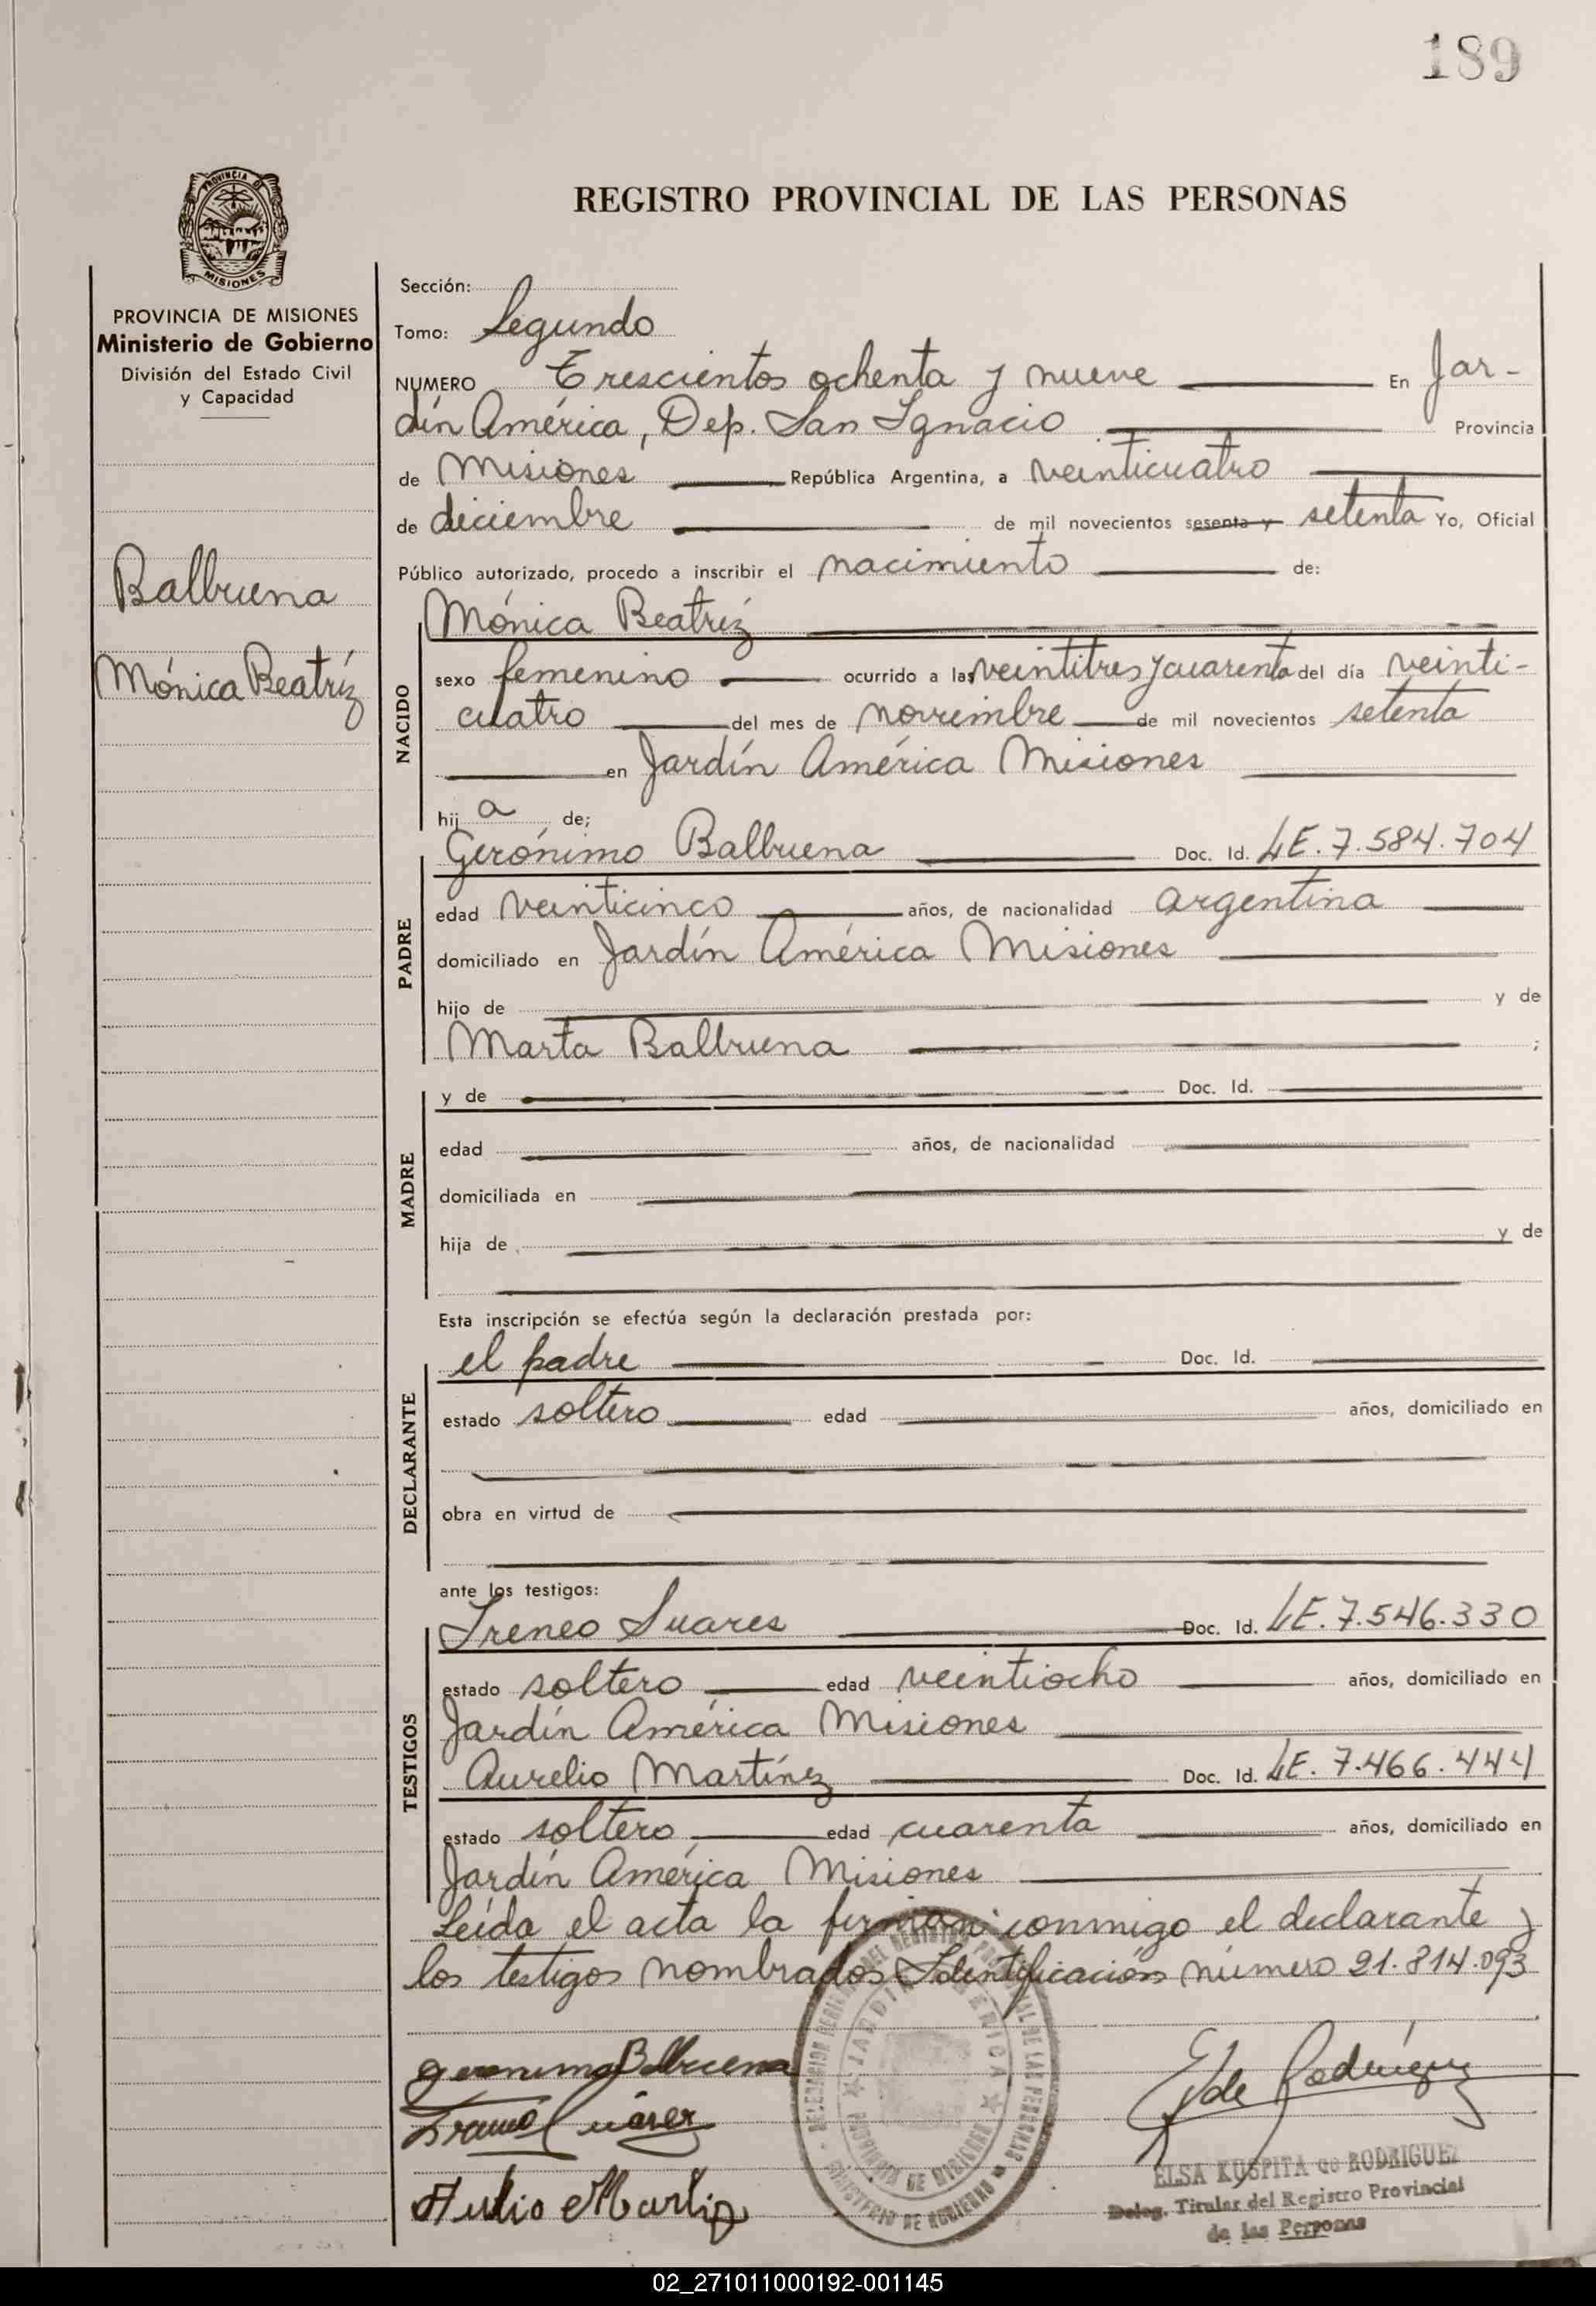 189
PROVINCIA DE
MISIONES
REGISTRO PROVINCIAL DE LAS PERSONAS
PROVINCIA DE MISIONES
Ministerio de Gobierno
División del Estado Civil
y Capacidad
Balbuena
Mónica Beatríz
Sección:
Tomo: Segundo
NUMERO Trescientos ochenta y nueve En Jar-
dín América, Dep. San Ignacio Provincia
de Misiones República Argentina, a veinticuatro
de diciembre de mil novecientos sesenta y setenta Yo, Oficial
Público autorizado, procedo a inscribir el nacimiento de:
NACIDO
Mónica Beatríz
sexo femenino ocurrido a las veintitres y cuarenta del día veinti-
cuatro del mes de noviembre de mil novecientos setenta
en Jardín América Misiones
hij a de;
PADRE
Gerónimo Balbuena Doc. Id. LE. 7.584.704
edad veinticinco años, de nacionalidad argentina
domiciliado en Jardín América Misiones
hijo de y de
Marta Balbuena ;
MADRE
y de Doc. Id.
edad años, de nacionalidad
domiciliada en
hija de y de
Esta inscripción se efectúa según la declaración prestada por:
DECLARANTE
el padre Doc. Id.
estado soltero edad años, domiciliado en
obra en virtud de
ante los testigos:
TESTIGOS
Ireneo Suares Doc. Id. LE. 7.546.330
estado soltero edad veintiocho años, domiciliado en
Jardín América Misiones
Aurelio Martínez Doc. Id. LE. 7.466.444
estado soltero edad cuarenta años, domiciliado en
Jardín América Misiones
Leída el acta la firman conmigo el declarante y
los testigos nombrados. Identificación número 21.814.093
geronimo Balbuena
JARDIN AMERICA
PROVINCIA DE MISIONES
MINISTERIO DE GOBIERNO
E. de Rodríguez
ELSA KUSPITA de RODRIGUEZ
Deleg. Titular del Registro Provincial
de las Personas
02_271011000192-001145